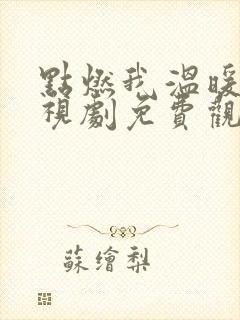 點燃我溫暖
視劇免費觀
蘇繪梨